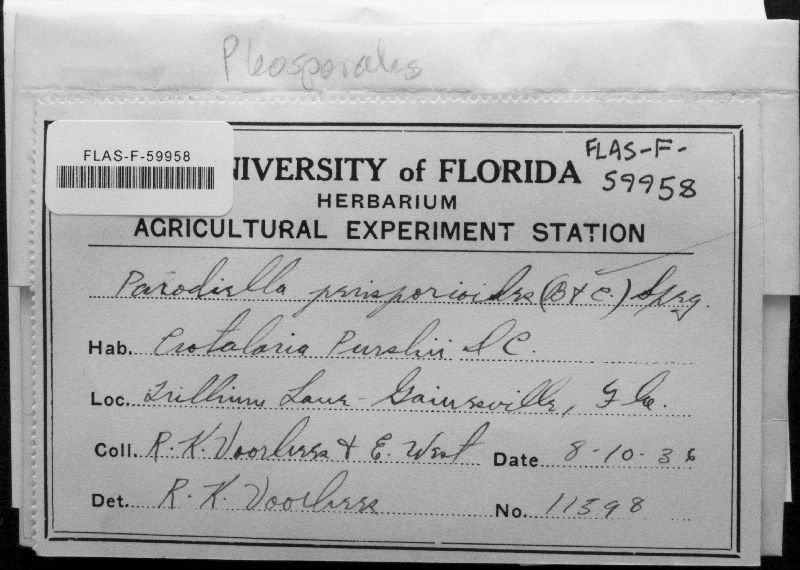 Pleosporales
FLAS-F-59958
NIVERSITY of FLORIDA
FLAS-F-
59958
HERBARIUM
AGRICULTURAL EXPERIMENT STATION
Parodiella perisporioides (B & C.) Speg.
Hab. Crotalaria Purshii DC.
Loc. Trillium Lane - Gainesville, Fla.
Coll. R. K. Voorhees & E. West Date 8-10-36
Det. R. K. Voorhees No. 11598